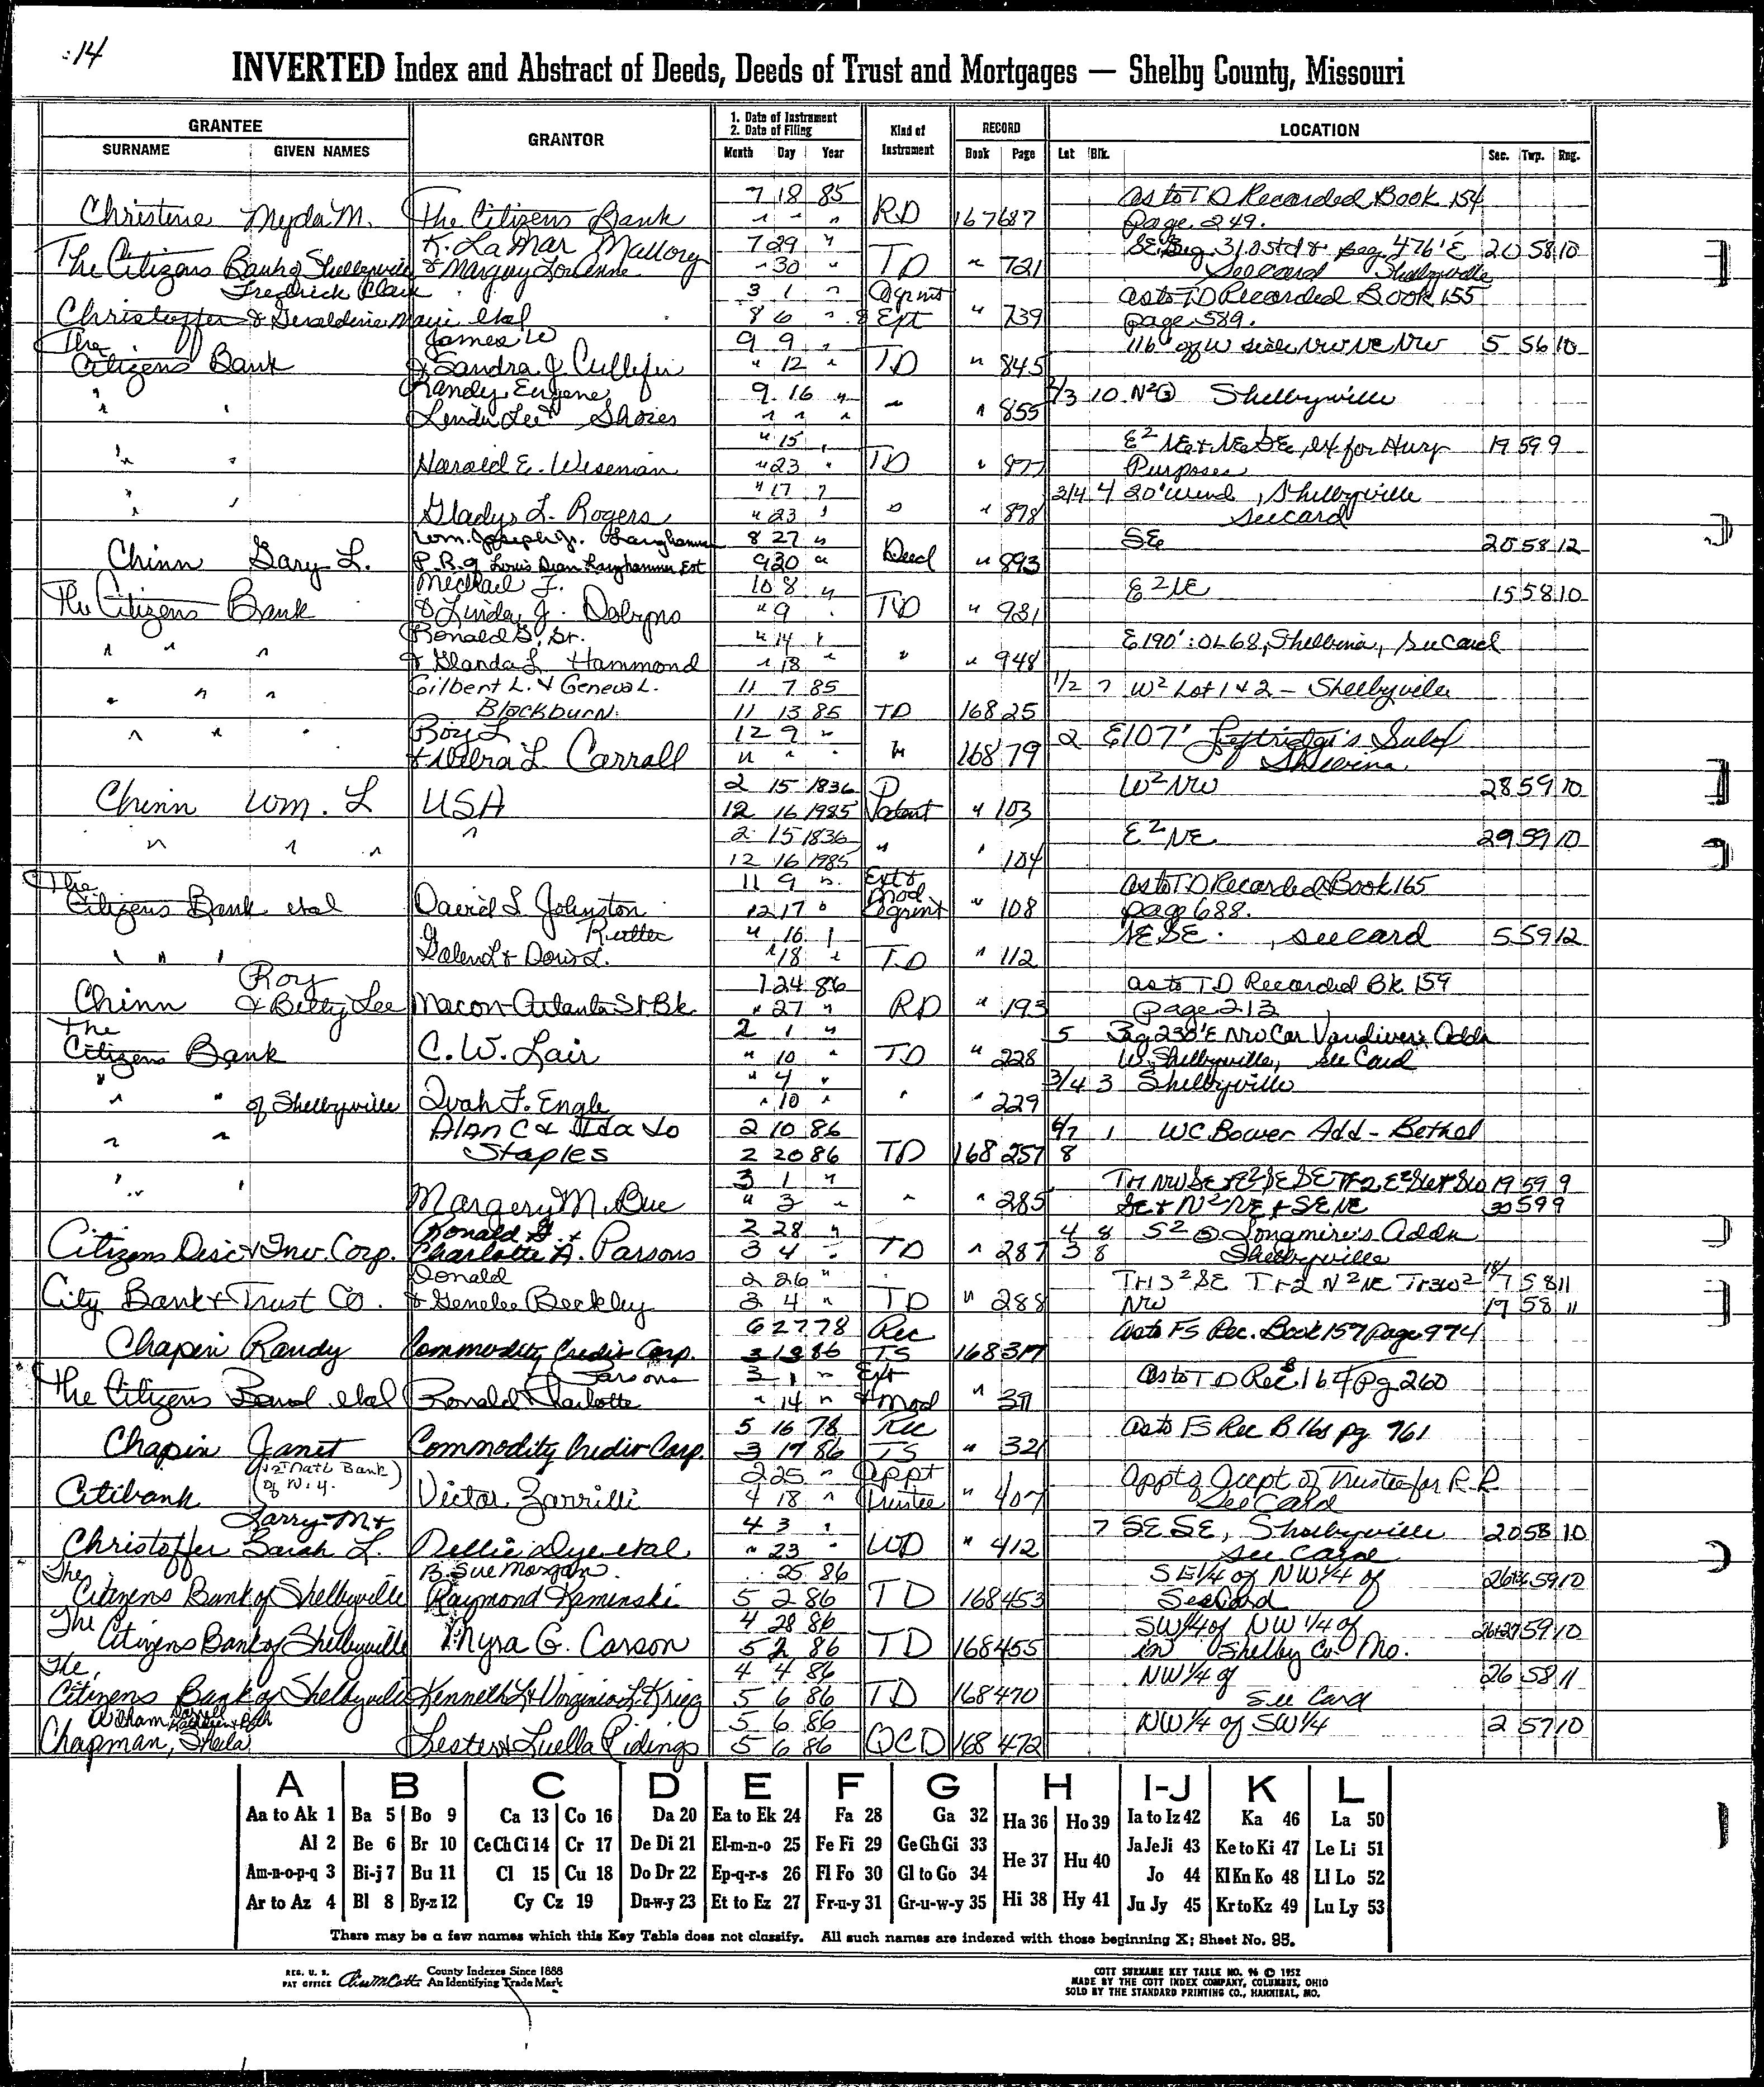 :14
INVERTED Index and Abstract of Deeds, Deeds of Trust and Mortgages — Shelby County, Missouri
GRANTEE
SURNAME GIVEN NAMES
GRANTOR
1. Date of Instrument
2. Date of Filing
Month Day Year
Kind of Instrument
RECORD
Book Page
LOCATION
Lot Blk. Sec. Twp. Rng.
7 18 85 as to TD Recorded Book 154
Christine Myda M. The Citizens Bank " " " RD 167 687 page 249.
K. LaMar Mallory 7 29 " 20 58 10
The Citizens Bank of Shelbyville & " 30 " TD " 721 See card Shelbyville
Fredrick Clair 3 1 " Agrmt as to TD Recorded Book 155
Christoffer & Geraldine etal 8 6 " & Ext " 739 page 589.
The James W 9 9 " 116' of W side NW NE NW 5 56 10
Citizens Bank & Sandra J " 12 " TD " 845
Randy Eugene 9 16 " 2/3 10 N2 Shelbyville
" " Linda Lee Shores " " " " " 855
" 15 " E2 NE & NE SE, ex for Hwy 19 59 9
" " Harold E. Wiseman " 23 " TD " 877 Purposes
" 17 " 3/4 4 20' Wend, Shelbyville
" " Gladys L. Rogers " 23 " " " 878 see card
Wm. Joseph Jr. 8 27 " SE 20 58 12
Chinn Gary L. P.R. of Louis Dean Est 9 30 " Deed " 893
Michael J. 10 8 " E2 NE 15 58 10
The Citizens Bank & Linda J. " 9 " TD " 931
Ronald G, Sr. " 14 " E190': OL 68, Shelbina, see Card
" " " & Glanda L Hammond " 18 " " " 948
Gilbert L. & Geneva L. 11 7 85 1/2 7 W2 Lot 1 & 2 - Shelbyville
" " " Blackburn 11 13 85 TD 168 25
Roy L 12 9 " 2 E107' Leftridge's Subd
" " " & Wilma L Carroll " " " " 168 79 Shelbina
2 15 1836 W2 NW 28 59 10
Chinn Wm. L USA 12 16 1985 Patent " 103
" 2 15 1836 E2 NE 29 59 10
" " " 12 16 1985 " " 104
The 11 9 " Ext & Mod as to TD Recorded Book 165
Citizens Bank etal David L Johnston 12 17 " Agrmt " 108 page 688.
" 16 " NE SE, see card 5 59 12
" " " Galen L & Doris L. " 18 " TD " 112
Roy 1 24 86 as to TD Recorded Bk 159
Chinn & Betty Lee Macon-Atlanta St. Bk. " 27 " RD " 193 page 213
The 2 1 " 5 Beg 230'E NW Cor Vandivers Addn
Citizens Bank C. W. Lair " 10 " TD " 228 W. Shelbyville, see Card
" 4 " 3/4 3 Shelbyville
" " of Shelbyville Ivah F. Engle " 10 " " " 229
Alan C & Ida Jo 2 10 86 6/7 1 WC Bower Add - Bethel
" " Staples 2 20 86 TD 168 257 8
3 1 " 19 59 9
" " Margery M. Bue " 3 " " " 285 SE & N2 NE & SE NE 30 59 9
Ronald G. & 2 28 " 4 8 S2 Longmire's Addn
Citizens Disc & Inv. Corp. Charlotte A. Parsons 3 4 " TD " 287 3 8 Shelbyville
Donald 2 26 " Tr 1 S2 SE Tr 2 N2 NE Tr 3 W2 18/7 58 11
City Bank & Trust Co. & Genelee Beckley 3 4 " TD " 288 NW 17 58 11
6 27 78 Rec as to FS Rec. Book 157 page 974
Chapin Randy Commodity Credit Corp. 3 13 86 TS 168 317
Parsons 3 1 " Ext as to TD Rec B 164 pg 260
The Citizens etal Ronald & Charlotte " 14 " & Mod " 311
5 16 78 Rec as to FS Rec B 168 pg 961
Chapin Janet Commodity Credit Corp. 3 17 86 TS " 321
(1st Natl Bank of N.Y.) 2 25 " Appt Appt & Accpt of Trustee for R R
Citibank Victor Zarrilli 4 18 " Trustee " 407 See Card
Larry M & 4 3 " 7 SE SE, Shelbyville 20 58 10
Christoffer Sarah L. Nellie Dye etal " 23 " WD " 412 See Card
The B. Sue Morgan 25 86 SE1/4 of NW1/4 of 59 10
Citizens Bank of Shelbyville Raymond Kaminski 5 2 86 TD 168 453 See Card
The 4 28 86 SW1/4 of NW1/4 of 26+27 59 10
Citizens Bank of Shelbyville Myra G. Carson 5 2 86 TD 168 455 in Shelby Co. Mo.
The 4 4 86 NW1/4 of 26 58 11
Citizens Bank of Shelbyville Kenneth L & Virginia L. Krieg 5 6 86 TD 168 470 See Card
5 6 86 NW1/4 of SW1/4 2 57 10
Chapman, Sheila Lester & Luella Ridings 5 6 86 QCD 168 472
A B C D E F G H I-J K L
Aa to Ak 1 Ba 5 Bo 9 Ca 13 Co 16 Da 20 Ea to Ek 24 Fa 28 Ga 32 Ha 36 Ho 39 Ia to Iz 42 Ka 46 La 50
Al 2 Be 6 Br 10 Ce Ch Ci 14 Cr 17 De Di 21 El-m-n-o 25 Fe Fi 29 Ge Gh Gi 33 He 37 Hu 40 Ja Je Ji 43 Ke to Ki 47 Le Li 51
Am-n-o-p-q 3 Bi-j 7 Bu 11 Cl 15 Cu 18 Do Dr 22 Ep-q-r-s 26 Fl Fo 30 Gl to Go 34 Jo 44 Kl Kn Ko 48 Ll Lo 52
Ar to Az 4 Bl 8 By-z 12 Cy Cz 19 Du-w-y 23 Et to Ez 27 Fr-u-y 31 Gr-u-w-y 35 Hi 38 Hy 41 Ju Jy 45 Kr to Kz 49 Lu Ly 53
There may be a few names which this Key Table does not classify. All such names are indexed with those beginning X; Sheet No. 95.
REG. U. S. PAT OFFICE County Indexes Since 1888 An Identifying Trade Mark
COTT SURNAME KEY TABLE NO. 96 © 1952
MADE BY THE COTT INDEX COMPANY, COLUMBUS, OHIO
SOLD BY THE STANDARD PRINTING CO., HANNIBAL, MO.